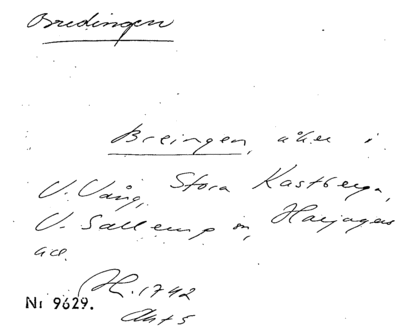 Bredingen
Breingen, åker i
V. Vång, Stora Kastberga,
V. Sallerup sn, Harjagers
hd.
LM. 1742
Akt 5
Nr 9629.